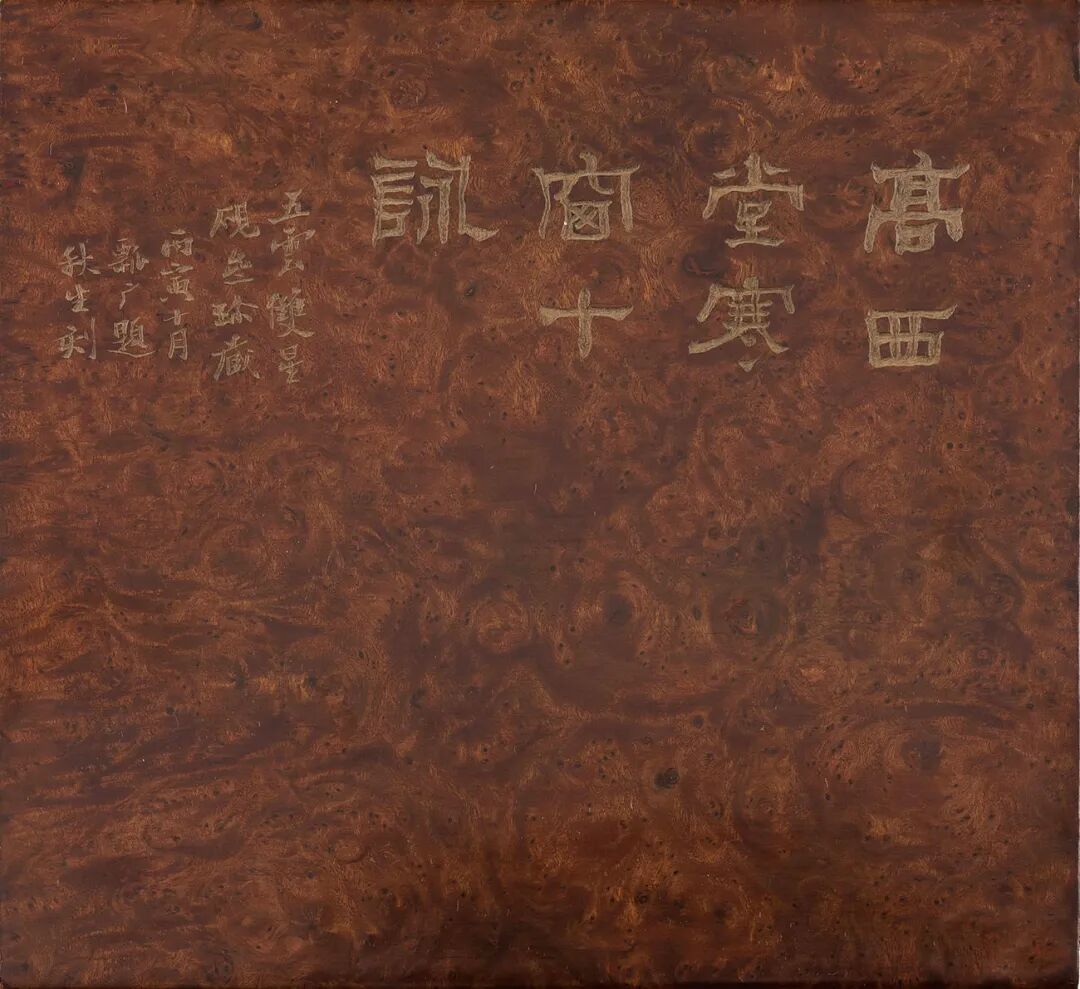 高西
堂寒
窗十
詠
五雲雙星
硯珍藏
丙寅十月
广題
秋生刻